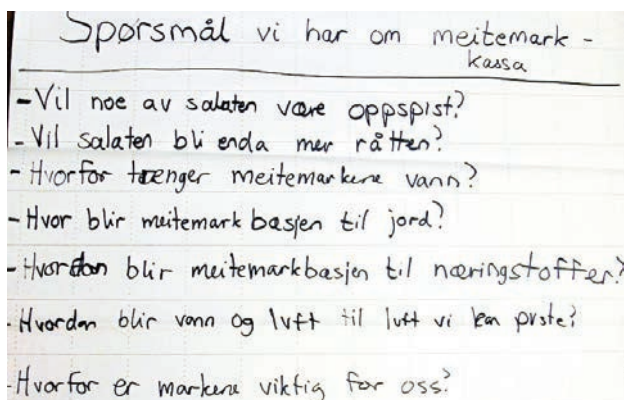 Spørsmål vi har om meitemark-
kassa
- Vil noe av salaten være oppspist?
- Vil salaten bli enda mer råtten?
- Hvorfor trenger meitemarkene vann?
- Hvor blir meitemark bæsjen til jord?
- Hvordan blir meitemarkbæsjen til næringstoffer?
- Hvordan blir vann og luft til luft vi kan puste?
- Hvorfor er markene viktig for oss?